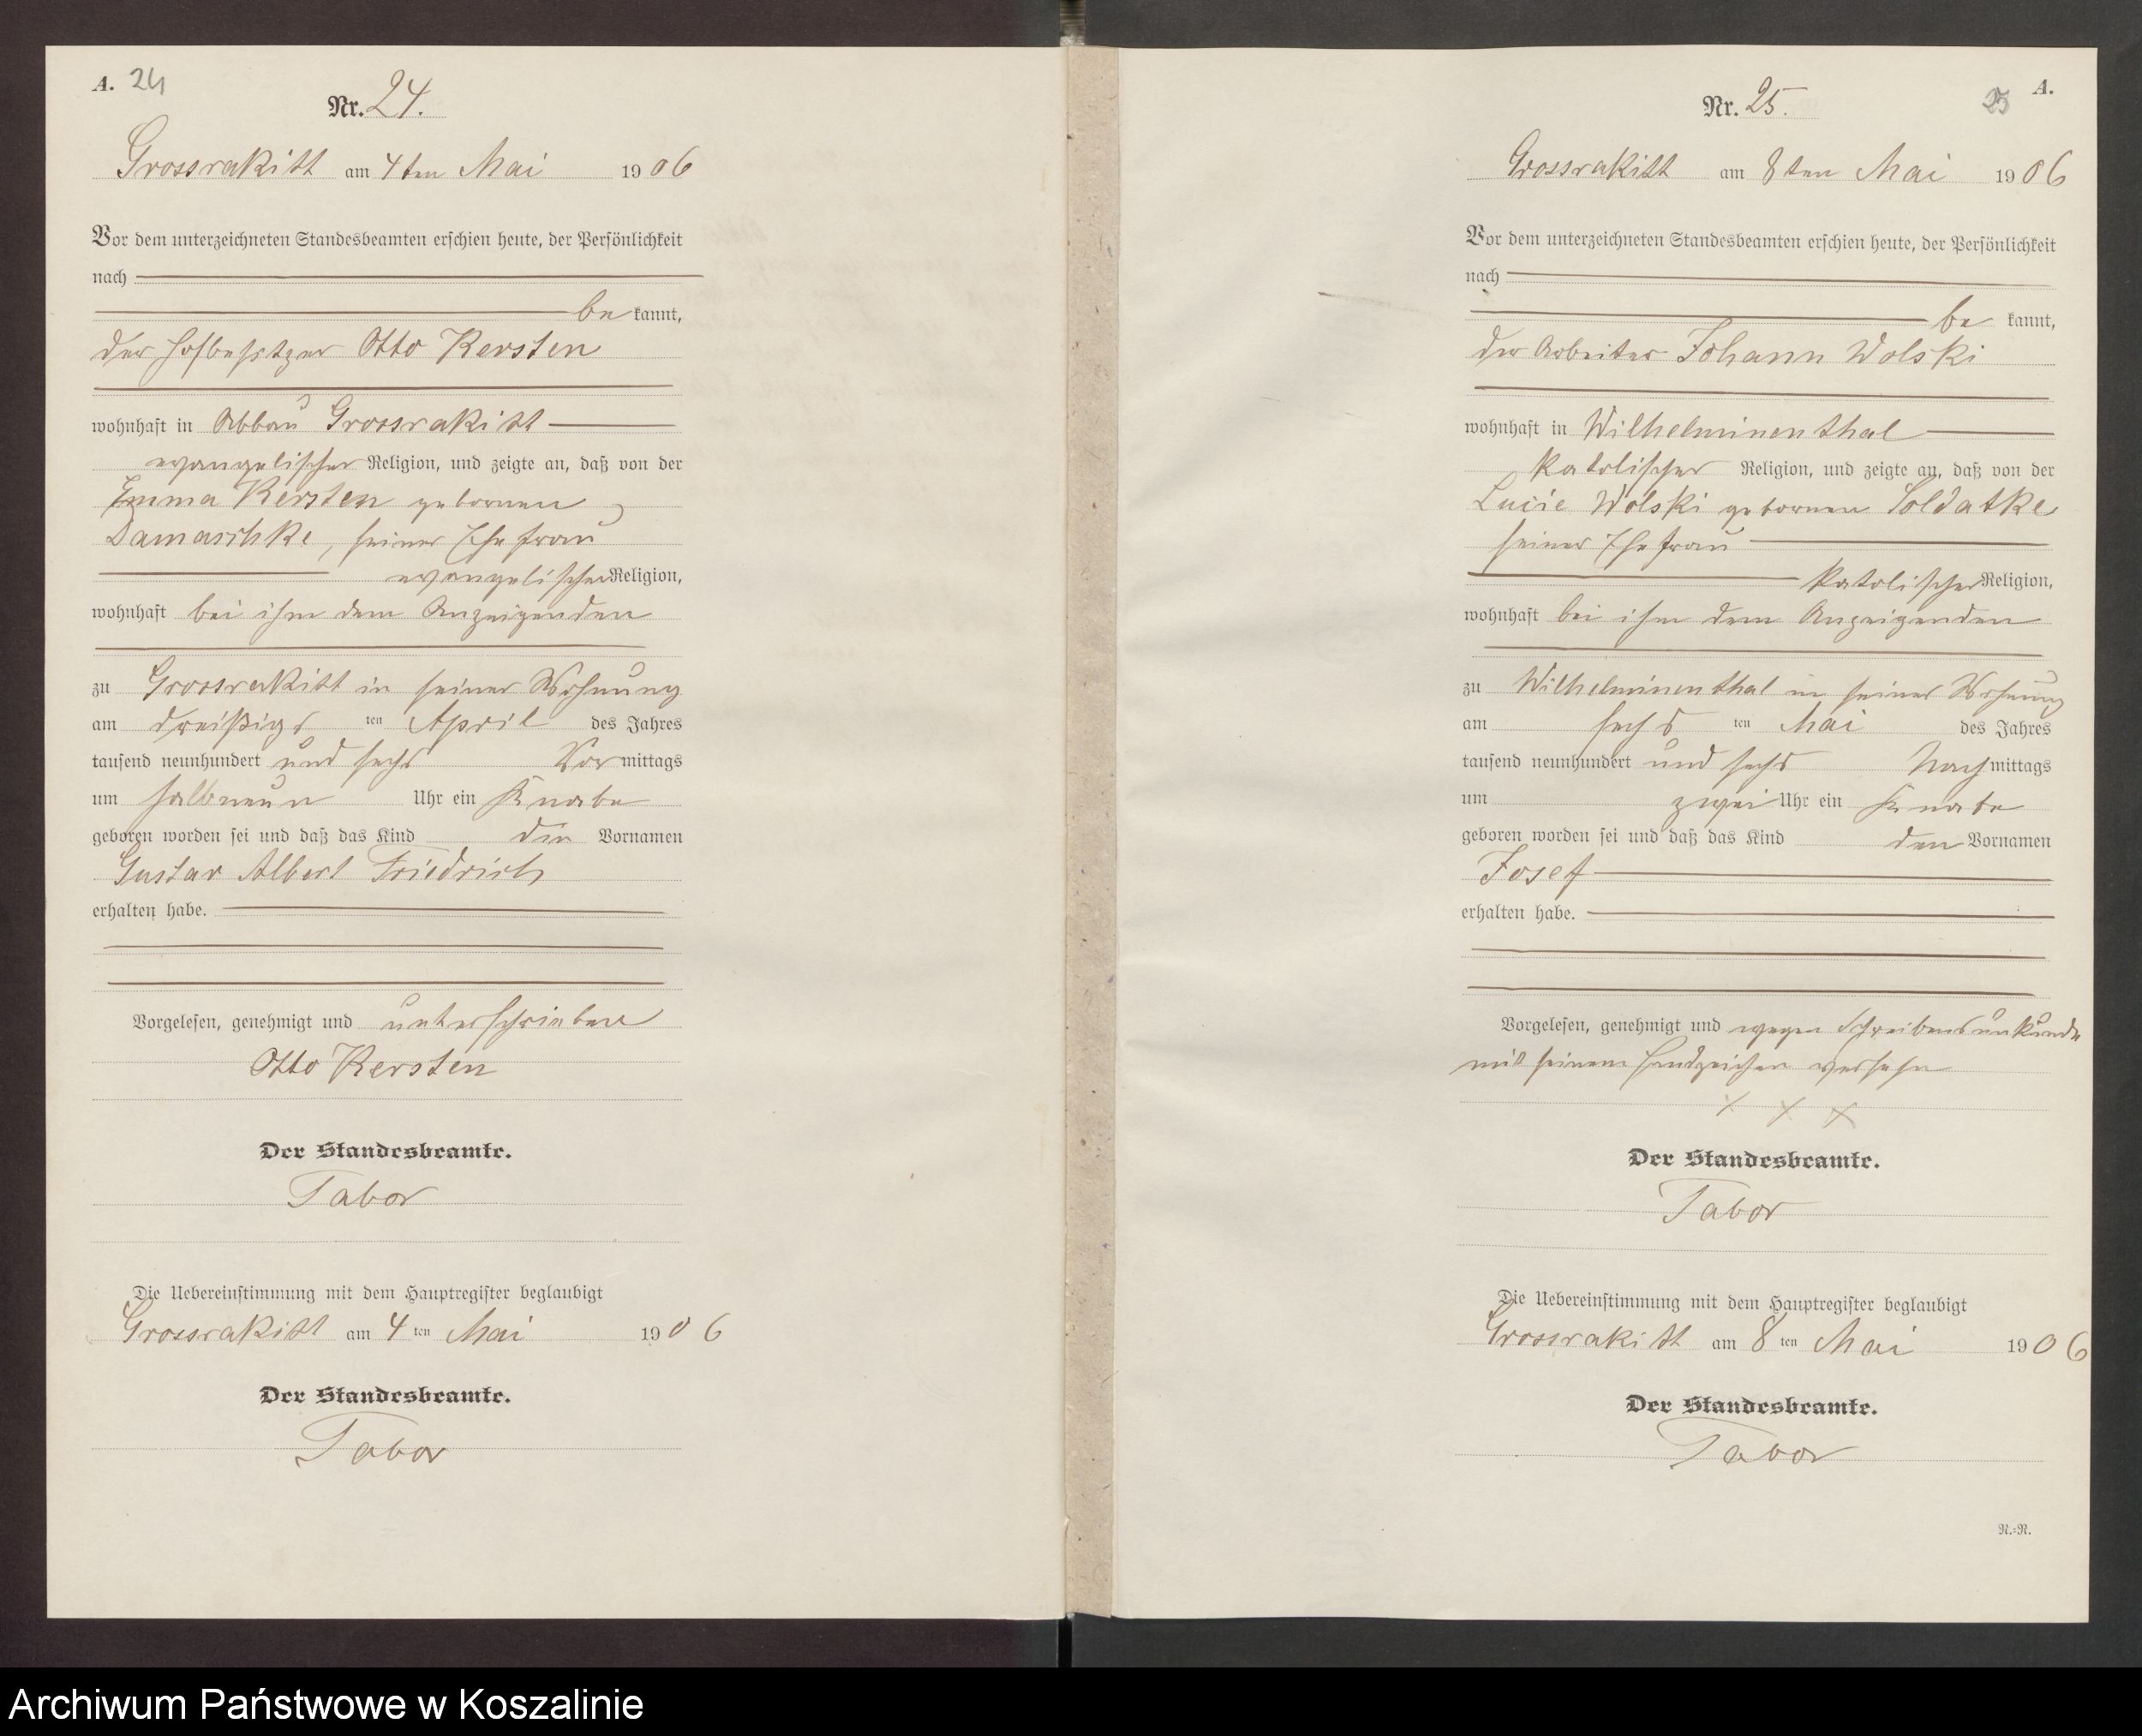 A. 24
Nr. 24.
Grossrakitt am 4ten Mai 1906
Vor dem unterzeichneten Standesbeamten erschien heute, der Persönlichkeit
nach
bekannt,
der Hofbesitzer Otto Kersten
wohnhaft in Abbau Grossrakitt
evangelischer Religion, und zeigte an, daß von der
Emma Kersten gebornen
Damaschke, seiner Ehefrau
evangelischer Religion,
wohnhaft bei ihm dem Anzeigenden
zu Grossrakitt in seiner Wohnung
am dreißigs ten April des Jahres
tausend neunhundert und sechs Vormittags
um halbneun Uhr ein Knabe
geboren worden sei und daß das Kind die Vornamen
Gustav Albert Friedrich
erhalten habe.
Vorgelesen, genehmigt und unterschrieben
Otto Kersten
Der Standesbeamte.
Tabor
Die Uebereinstimmung mit dem Hauptregister beglaubigt
Grossrakitt am 4 ten Mai 1906
Der Standesbeamte.
Tabor
25 A.
Nr. 25.
Grossrakitt am 8ten Mai 1906
Vor dem unterzeichneten Standesbeamten erschien heute, der Persönlichkeit
nach
bekannt,
der Arbeiter Johann Wolski
wohnhaft in Wilhelminenthal
katolischer Religion, und zeigte an, daß von der
Lucie Wolski gebornen Soldatke
seiner Ehefrau
katolischer Religion,
wohnhaft bei ihm dem Anzeigenden
zu Wilhelminenthal in seiner Wohnung
am sechs ten Mai des Jahres
tausend neunhundert und sechs Nachmittags
um zwei Uhr ein Knabe
geboren worden sei und daß das Kind den Vornamen
Josef
erhalten habe.
Vorgelesen, genehmigt und wegen Schreibensunkunde
mit seinem Handzeichen versehn
X X X
Der Standesbeamte.
Tabor
Die Uebereinstimmung mit dem Hauptregister beglaubigt
Grossrakitt am 8 ten Mai 1906
Der Standesbeamte.
Tabor
N.-N.
Archiwum Państwowe w Koszalinie